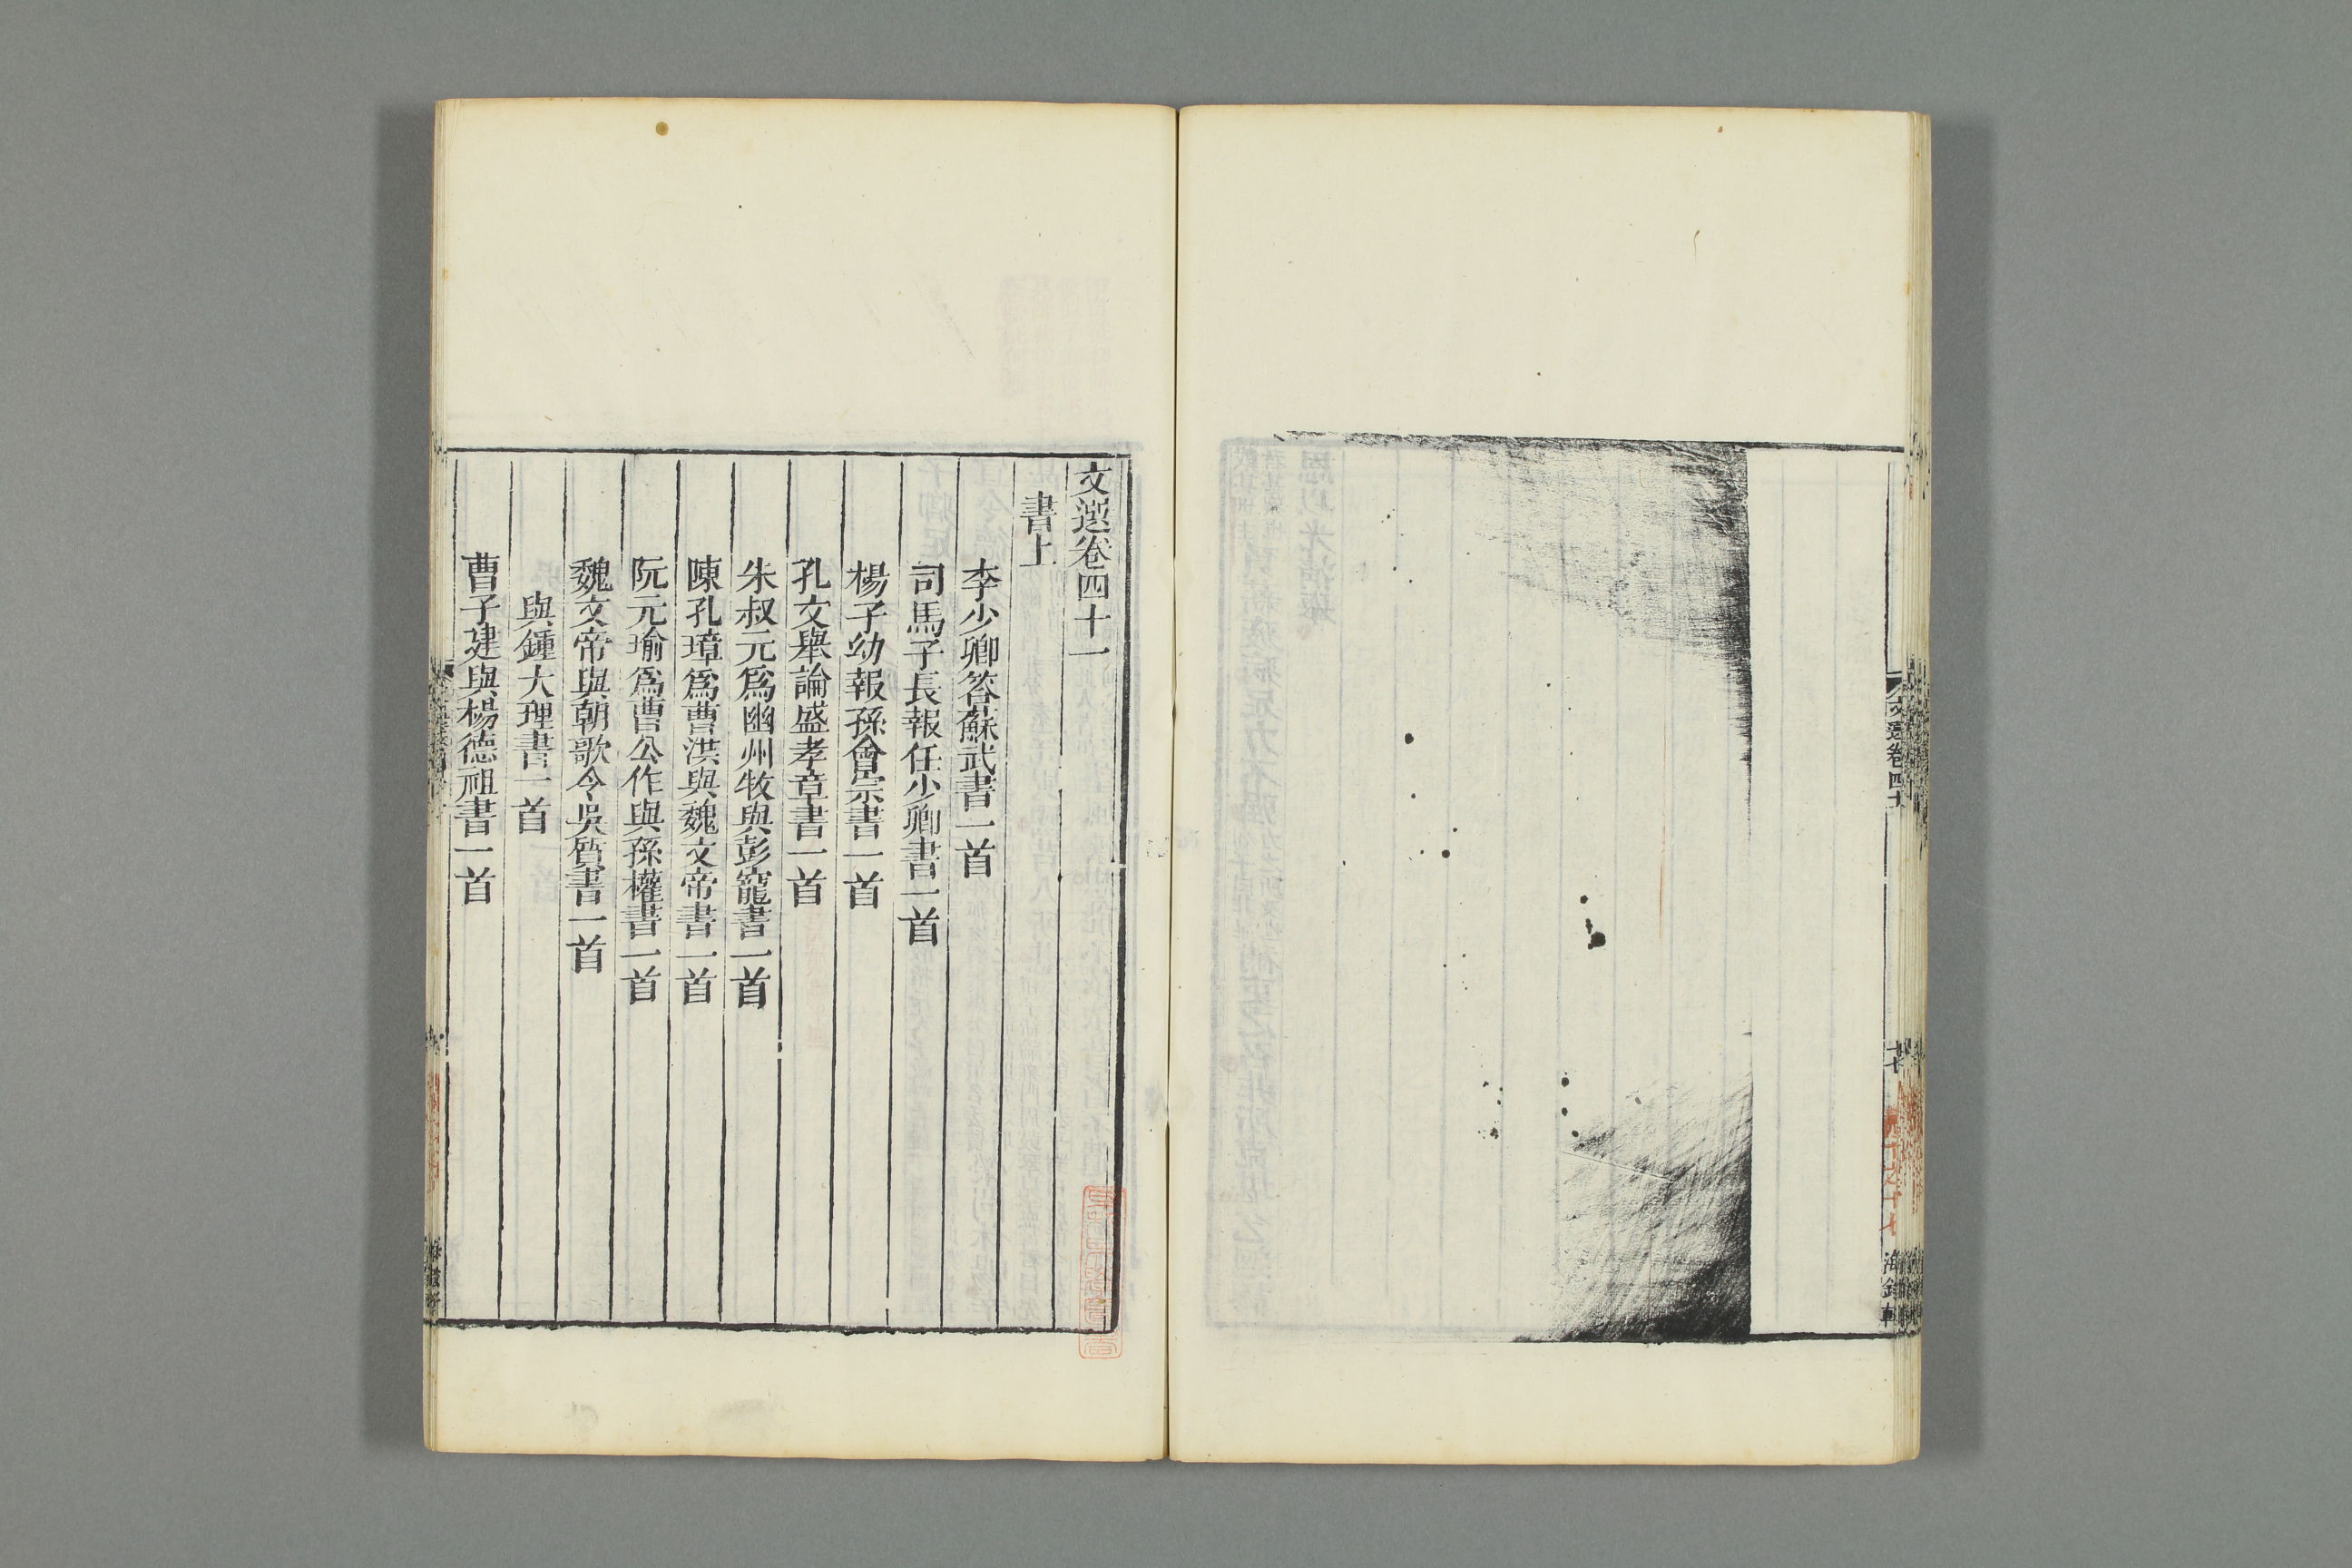 文選卷四十
十七
海錄軒
文選卷四十一
書上
李少卿答蘇武書一首
司馬子長報任少卿書一首
楊子幼報孫會宗書一首
孔文舉論盛孝章書一首
朱叔元爲幽州牧與彭寵書一首
陳孔璋爲曹洪與魏文帝書一首
阮元瑜爲曹公作與孫權書一首
魏文帝與朝歌令吳質書一首
與鍾大理書一首
曹子建與楊德祖書一首